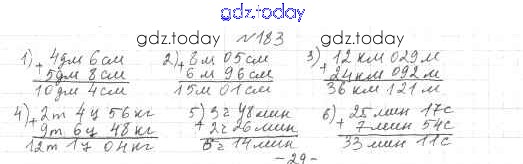 gdz.today
№183
gdz.today gdz.today gdz.today
1) + 4дм 6см 2) + 8м 05см 3) + 12км 029м
5дм 8см 6м 96см 24км 092м
10дм 4см 15м 01см 36км 121м
4) + 2т 4ц 56кг 5) + 3г 48мин 6) + 25мин 17с
9т 6ц 48кг 2г 26мин 7мин 54с
12т 1ц 04кг 6г 14мин 33мин 11с
-29-